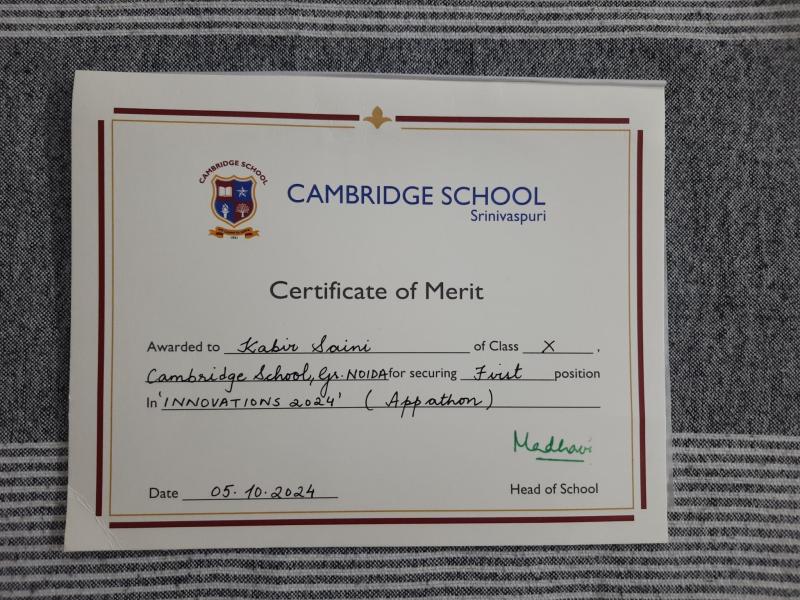 CAMBRIDGE SCHOOL
CAMBRIDGE SCHOOL
Srinivaspuri
Certificate of Merit
Awarded to Kabir Saini of Class X ,
Cambridge School, Gr. NOIDA for securing First position
In 'INNOVATIONS 2024' ( Appathon )
Madhavi
Date 05.10.2024 Head of School